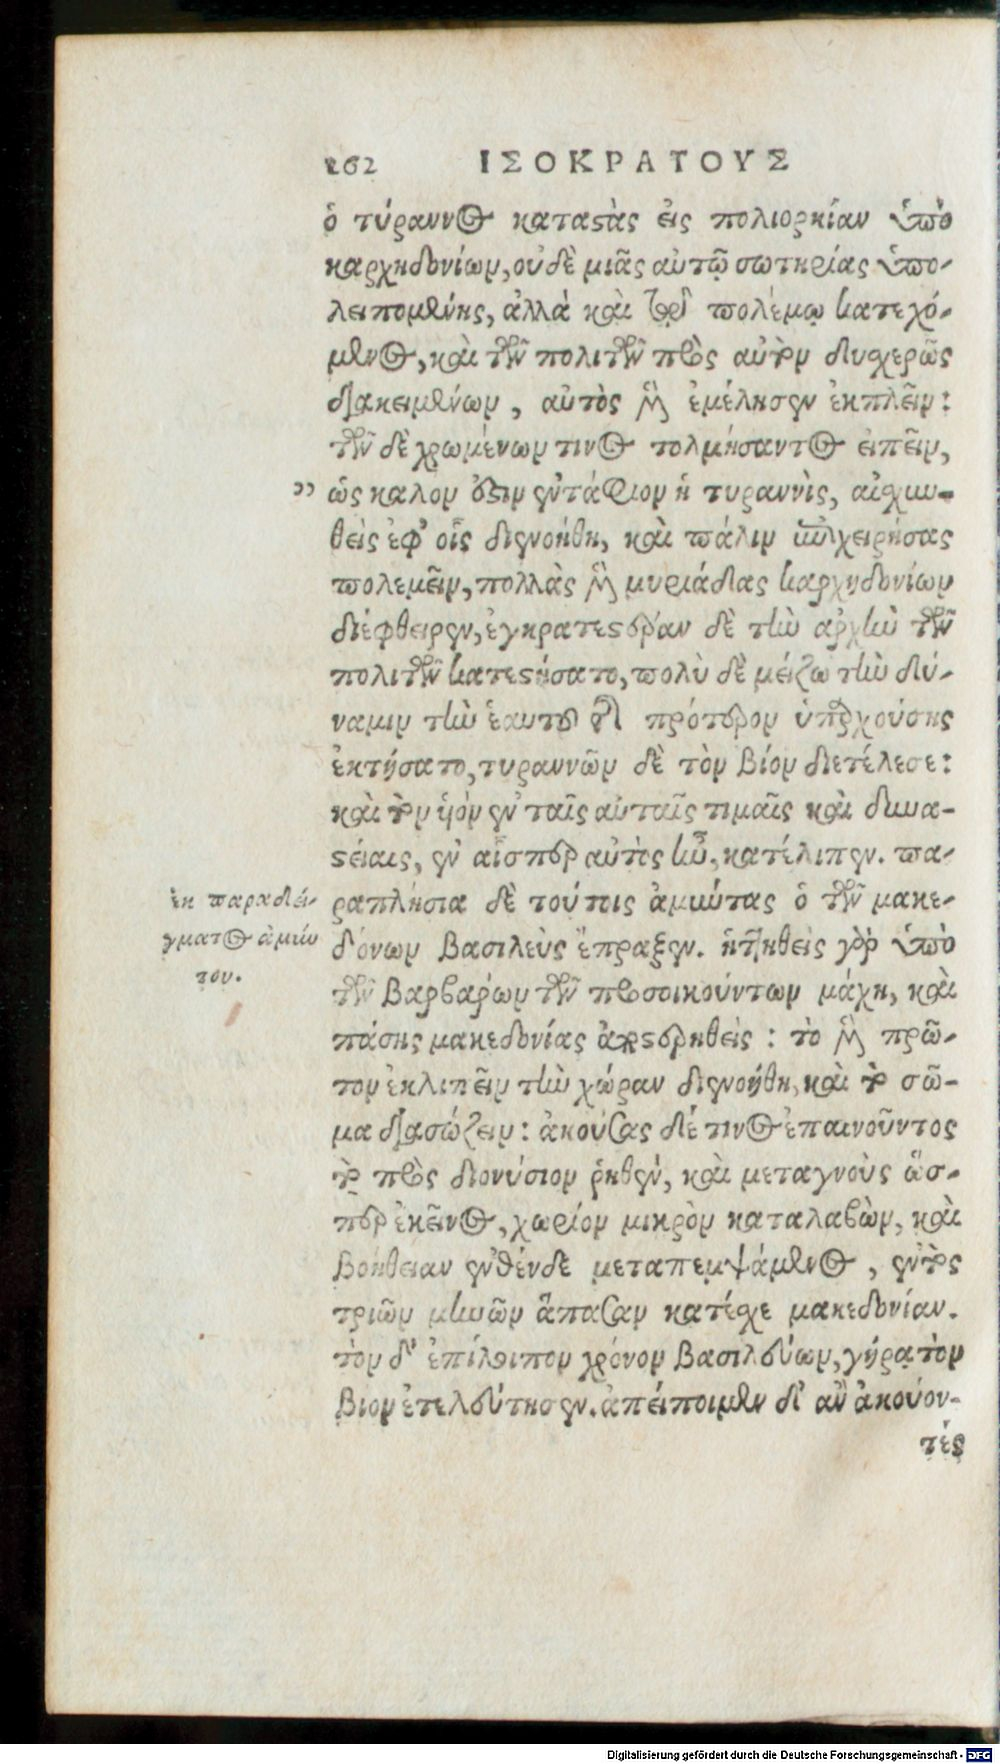 262 ΙΣΟΚΡΑΤΟΥΣ
ὁ τύραννος καταστὰς εἰς πολιορκίαν ὑπὸ
καρχηδονίων, οὐδὲ μιᾶς αὐτῷ σωτηρίας ὑπο-
λειπομένης, ἀλλὰ καὶ τῷ πολέμῳ κατεχό-
μενος, καὶ τῶν πολιτῶν πρὸς αὐτὸν δυσχερῶς
διακειμένων, αὐτὸς μὲν ἐμέλησεν ἐκπλεῖν:
τῶν δὲ χρωμένων τινὸς τολμήσαντος εἰπεῖν,
„ ὡς καλὸν ἐστιν ἐντάφιον ἡ τυραννὶς, αἰσχυν-
θεὶς ἐφ' οἷς διενοήθη, καὶ πάλιν ἐπιχειρήσας
πολεμεῖν, πολλὰς μὲν μυριάδας καρχηδονίων
διέφθειρεν, ἐγκρατεστέραν δὲ τὴν ἀρχὴν τῶν
πολιτῶν κατεστήσατο, πολὺ δὲ μείζω τὴν δύ-
ναμιν τὴν ἑαυτοῦ τῆς πρότερον ὑπερχούσης
ἐκτήσατο, τυραννῶν δὲ τὸν βίον διετέλεσε:
καὶ τὸν υἱὸν ἐν ταῖς αὐταῖς τιμαῖς καὶ δυνα-
στείαις, ἐν αἷσπερ αὐτὸς ἦν, κατέλιπεν. πα-
ραπλήσια δὲ τούτοις ἀμύντας ὁ τῶν μακε-
δόνων βασιλεὺς ἔπραξεν. ἡττηθεὶς γὰρ ὑπὸ
τῶν βαρβάρων τῶν προσοικούντων μάχῃ, καὶ
πάσης μακεδονίας ἀποστερηθεὶς: τὸ μὲν πρῶ-
τον ἐκλιπεῖν τὴν χώραν διενοήθη, καὶ τὸ σῶ-
μα διασώζειν: ἀκούσας δέ τινος ἐπαινοῦντος
τὸ πρὸς διονύσιον ῥηθὲν, καὶ μεταγνοὺς ὥσ-
περ ἐκεῖνος, χωρίον μικρὸν καταλαβὼν, καὶ
βοήθειαν ἐνθένδε μεταπεμψάμενος, ἐντὸς
τριῶν μηνῶν ἅπασαν κατέσχε μακεδονίαν.
τὸν δ' ἐπίλοιπον χρόνον βασιλεύων, γήρᾳ τὸν
βίον ἐτελεύτησεν. ἀπείποιμεν δ' ἂν ἀκούον-
τές
ἐκ παραδεί-
γματος ἀμύν
του.
Digitalisierung gefördert durch die Deutsche Forschungsgemeinschaft - DFG